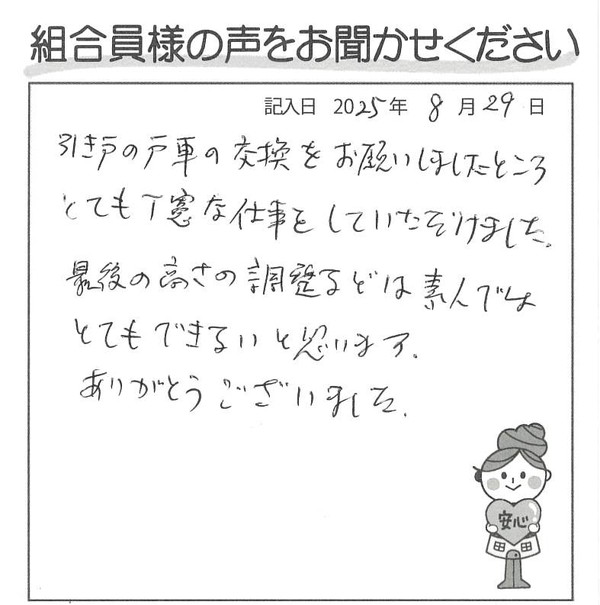 組合員様の声をお聞かせください
記入日 2025年 8月29日
引き戸の戸車の交換をお願いしましたところ
とても丁寧な仕事をしていただけました。
最後の高さの調整などは素人では
とてもできないと思います。
ありがとうございました。
安心